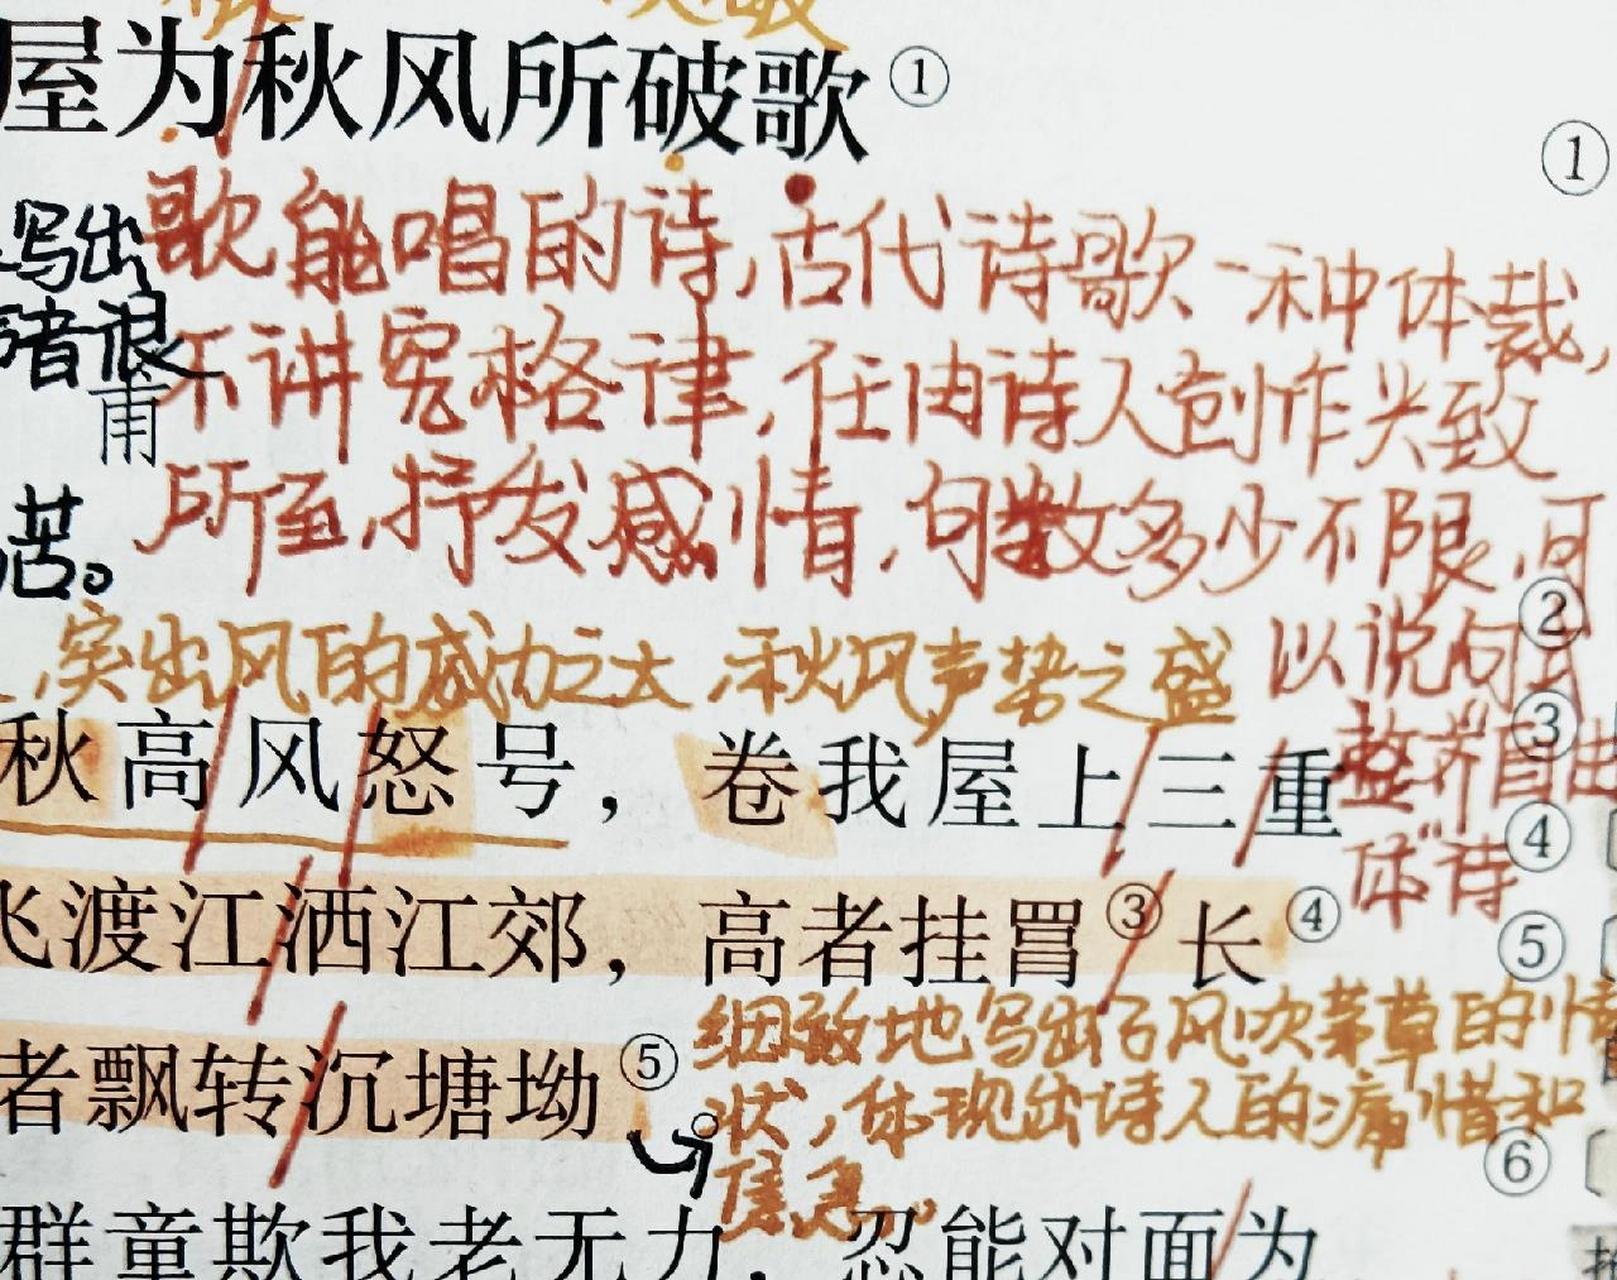 屋为秋风所破歌①
①
写出
歌能唱的诗,古代诗歌一种体裁,
者很
不讲究格律,任由诗人创作兴致
甫
所至,抒发感情,句数多少不限,可
苦。
②
以说句式
,突出风的威力之大,秋风声势之盛
③
整齐自由
秋高风怒号，卷我屋上三重
④
体"诗
飞渡江洒江郊，高者挂罥③长④
⑤
细致地写出了风吹茅草的情
者飘转沉塘坳⑤
状,体现出诗人的痛惜和
⑥
焦急。
群童欺我老无力，忍能对面为